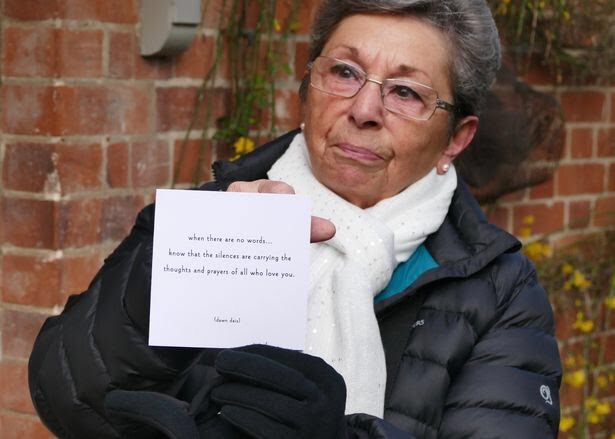 when there are no words...
know that the silences are carrying the
thoughts and prayers of all who love you.
(dawn dais)